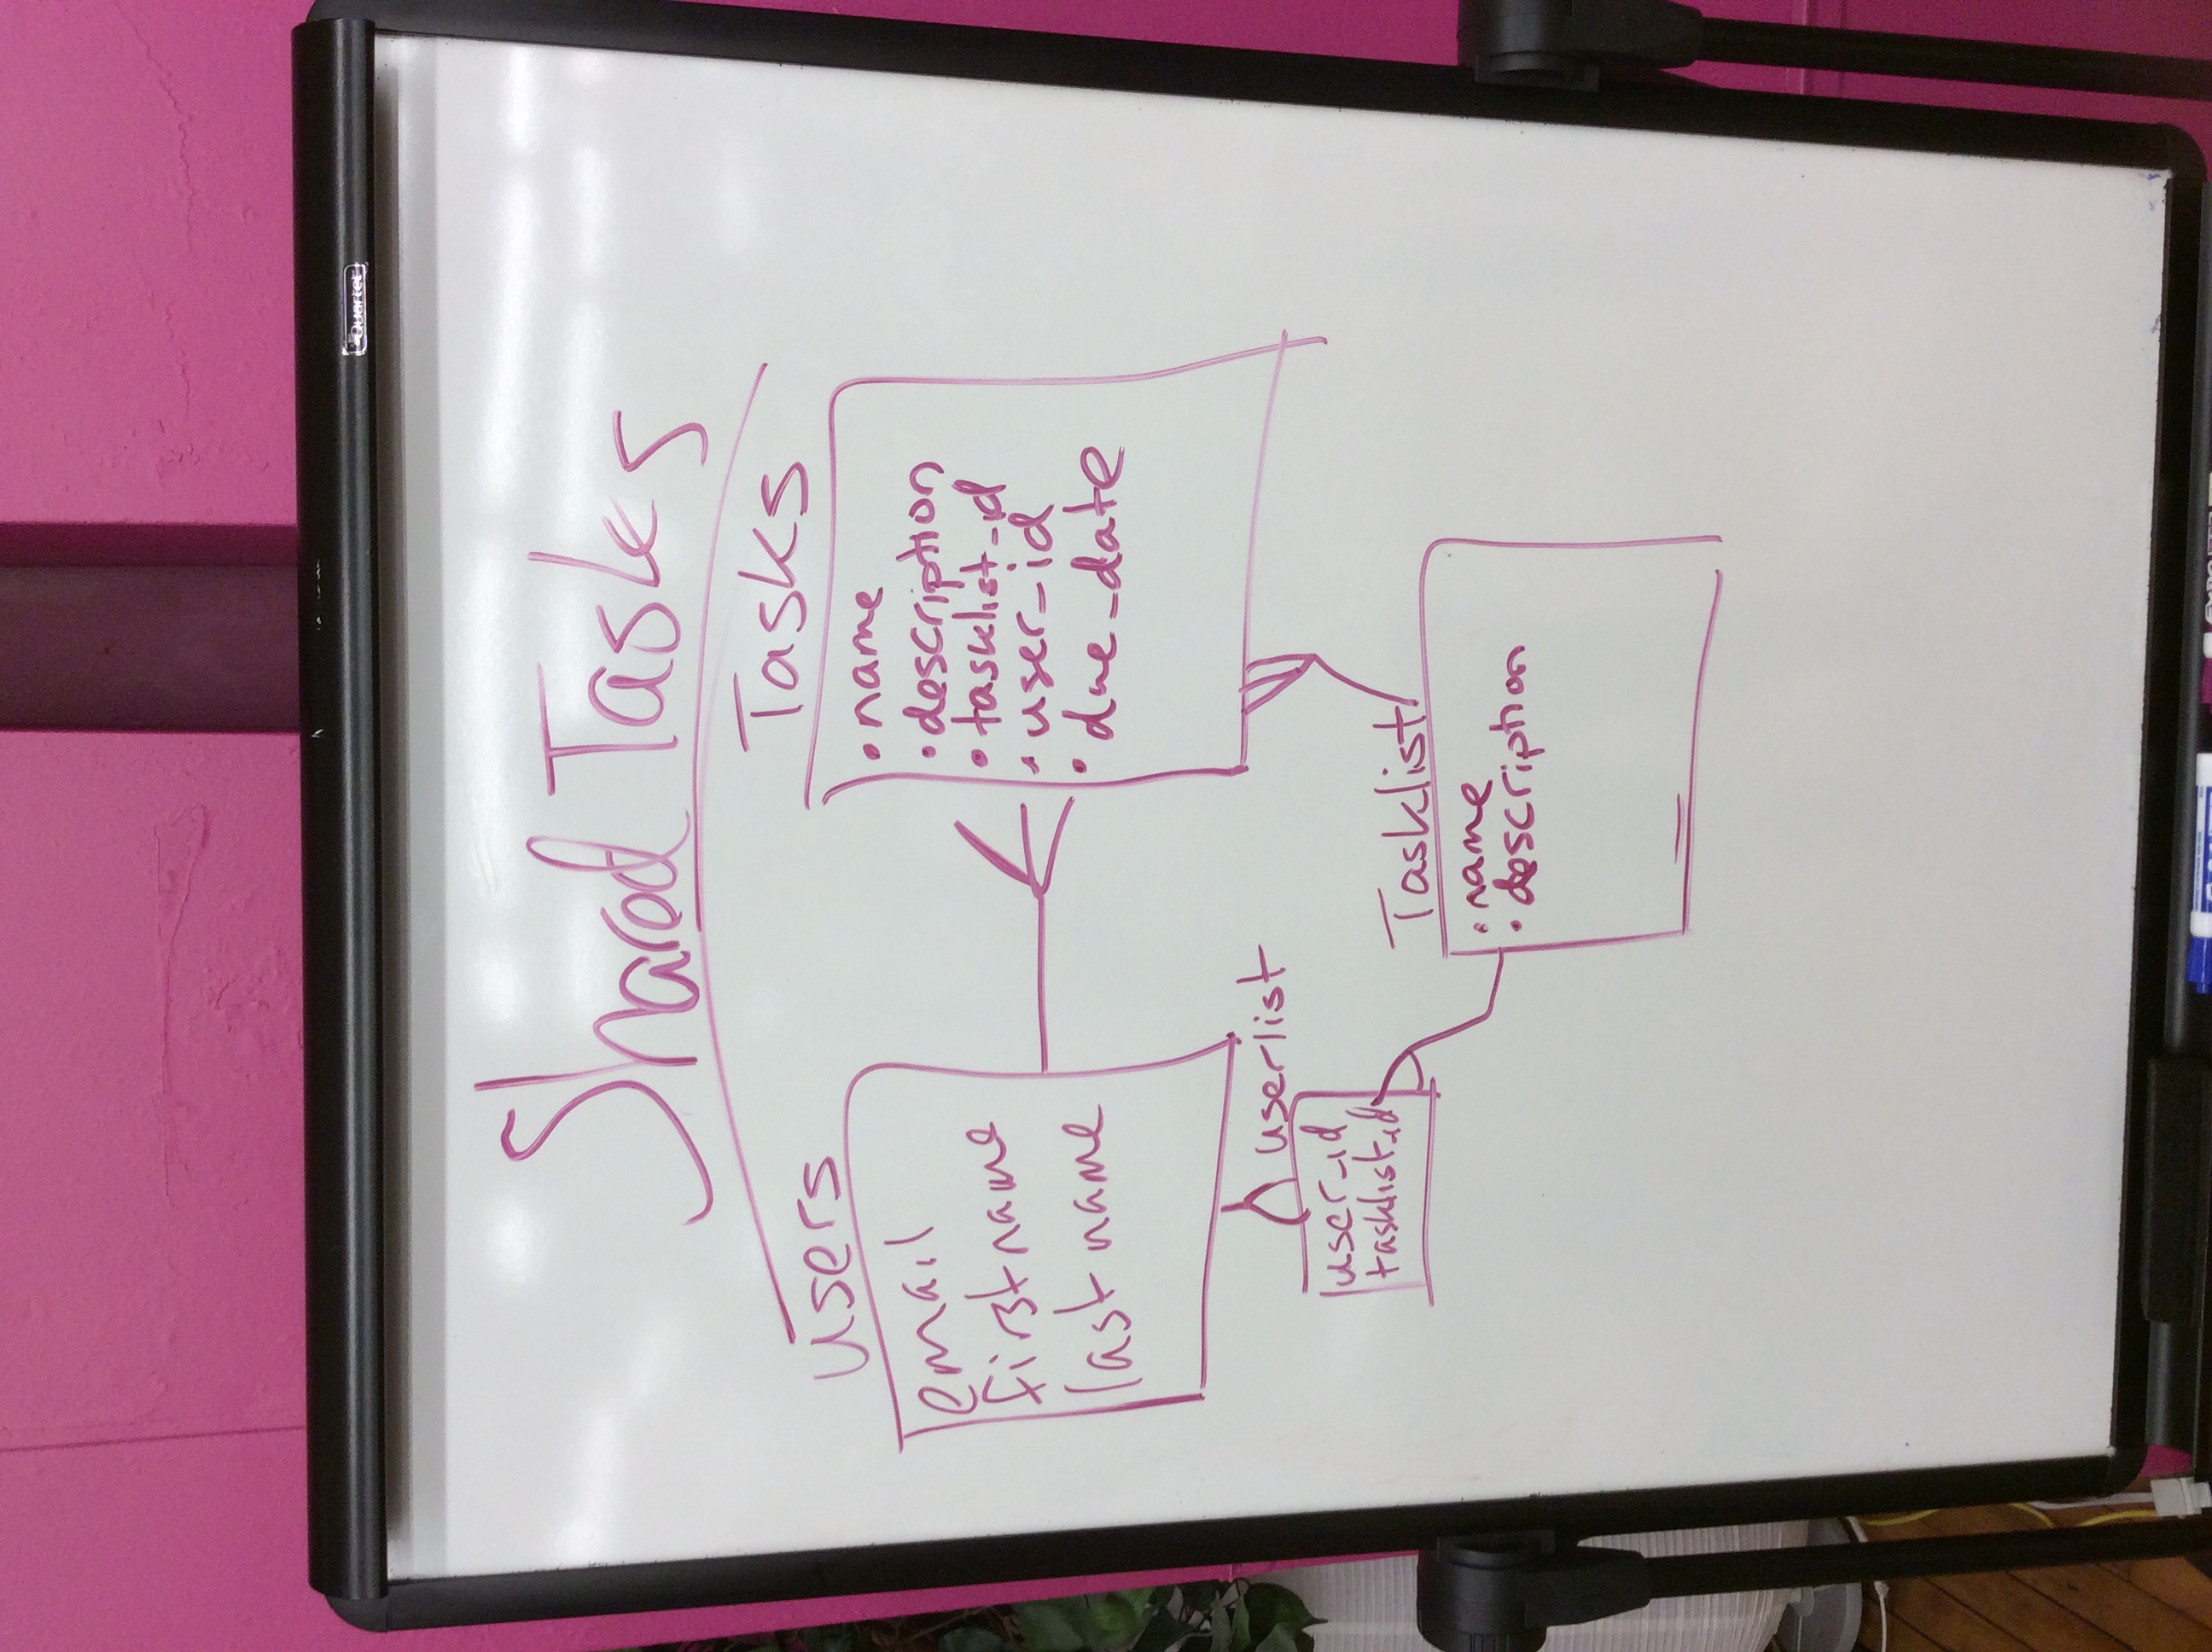 Quartet
Shared Tasks
users
email
firstname
last name
Tasks
• name
• description
• tasklist_id
• user_id
• due_date
userlist
user_id
tasklist_id
Tasklist
• name
• description
EXPO